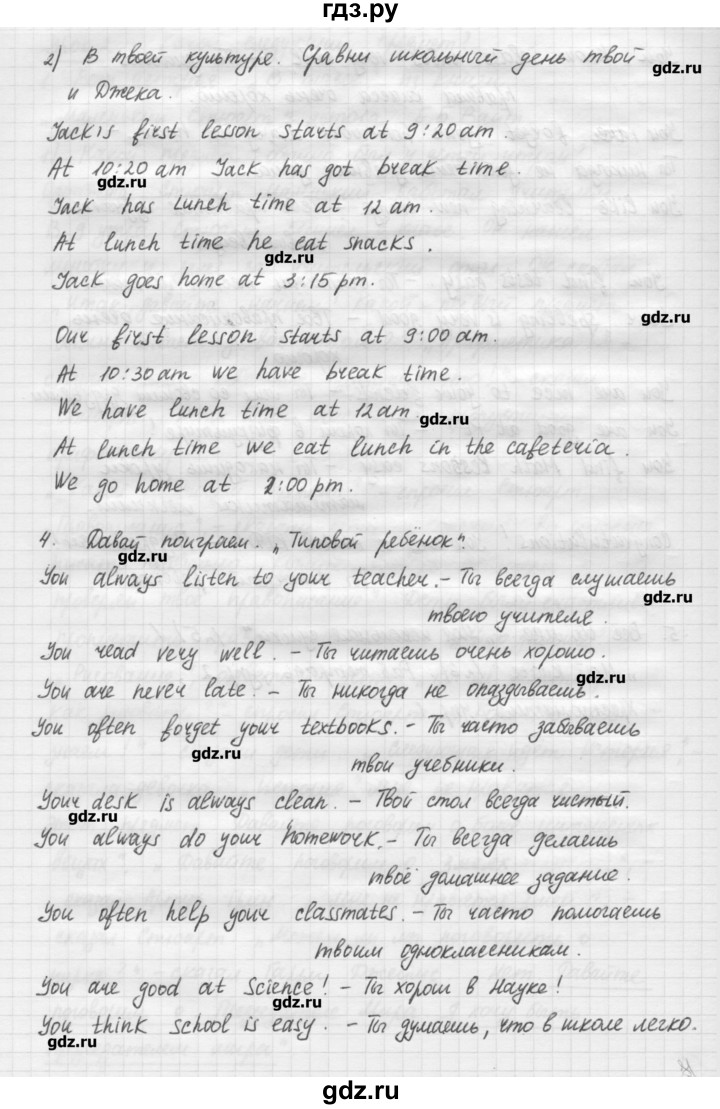 гдз.ру
2) В твоей культуре. Сравни школьный день твой
gdz.ru
и Джека.
Jack's first lesson starts at 9:20 am.
At 10:20 am Jack has got break time.
gdz.ru
Jack has lunch time at 12 am.
At lunch time he eat snacks.
gdz.ru
Jack goes home at 3:15 pm.
gdz.ru
Our first lesson starts at 9:00 am.
At 10:30 am we have break time.
We have lunch time at 12 am
gdz.ru
At lunch time we eat lunch in the cafeteria.
We go home at 2:00 pm.
4. Давай поиграем. „Типовой ребёнок".
gdz.ru
You always listen to your teacher. - Ты всегда слушаешь
gdz.ru
твоего учителя.
You read very well. - Ты читаешь очень хорошо.
gdz.ru
You are never late. - Ты никогда не опаздываешь.
You often forget your textbooks. - Ты часто забываешь
gdz.ru
твои учебники.
Your desk is always clean. - Твой стол всегда чистый.
gdz.ru
You always do your homework. - Ты всегда делаешь
твоё домашнее задание.
You often help your classmates. - Ты часто помогаешь
gdz.ru
твоим одноклассникам.
You are good at Science! - Ты хорош в Науке!
gdz.ru
You think school is easy. - Ты думаешь, что в школе легко.
gdz.ru
gdz.ru